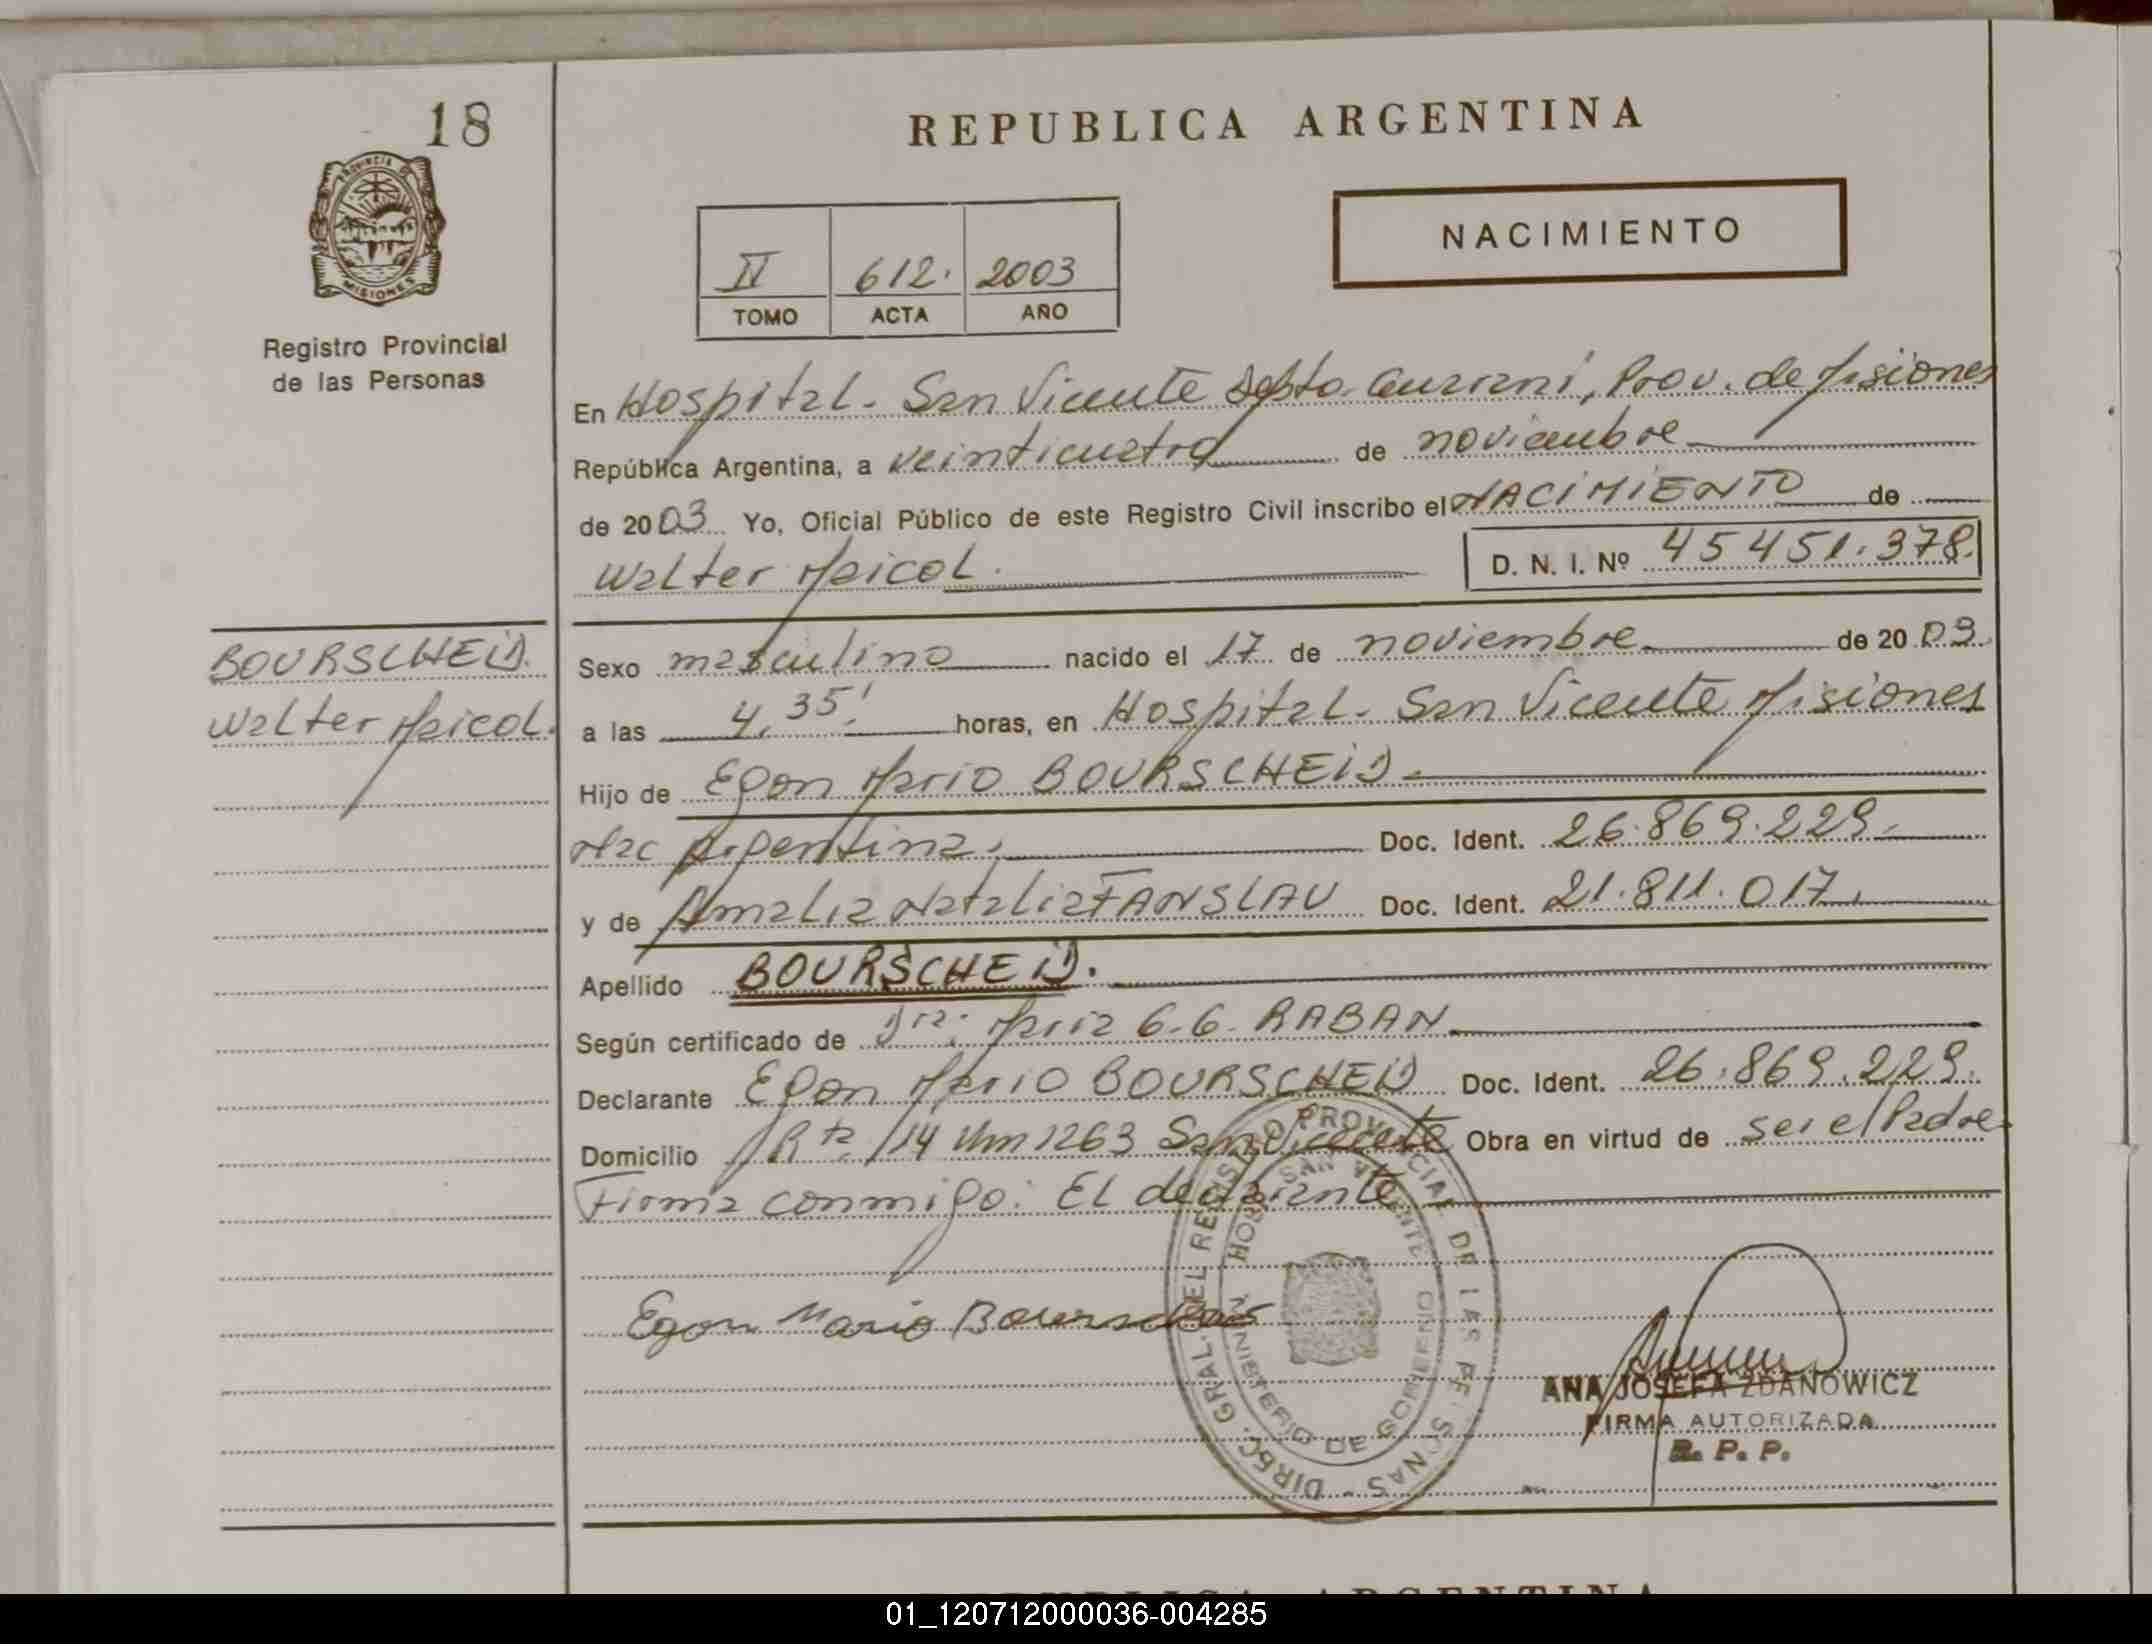 18
PROVINCIA DE
MISIONES
Registro Provincial
de las Personas
REPUBLICA ARGENTINA
NACIMIENTO
II 612. 2003
TOMO ACTA AÑO
En Hospital. San Vicente Dpto. Guaraní, Prov. de Misiones
República Argentina, a veinticuatro de noviembre
de 2003 Yo, Oficial Público de este Registro Civil inscribo el NACIMIENTO de
Walter Maicol. D. N. I. Nº 45451.378.
BOURSCHEID.
Walter Maicol.
Sexo masculino nacido el 17 de noviembre de 2003.
a las 4,35' horas, en Hospital. San Vicente Misiones
Hijo de Egon Mario BOURSCHEID
Nac Argentina. Doc. Ident. 26.869.229.
y de Amalia Natalia FANSLAU Doc. Ident. 21.811.017.
Apellido BOURSCHEID.
Según certificado de Dra. Maria G.G. RABAN
Declarante Egon Mario BOURSCHEID Doc. Ident. 26.869.229.
Domicilio Rta. 14 Km 1263 San Vicente Obra en virtud de ser el Padre
Firma conmigo: El declarante
Egon Mario
DIREC. GRAL. DEL REGISTRO PROVINCIAL DE LAS PERSONAS -
HOSP. SAN VICENTE
MINISTERIO DE GOBIERNO
ANA JOSEFA ZDANOWICZ
FIRMA AUTORIZADA
R. P. P.
REPUBLICA ARGENTINA
01_120712000036-004285